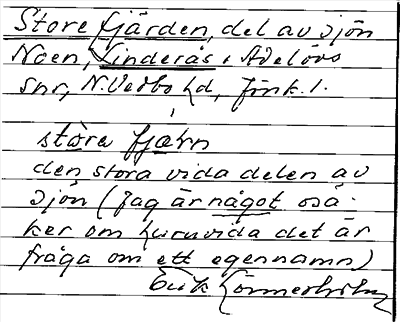 Store fjärden, del av sjön
Noen, Linderås o Adelövs
snr, N. Vedbo hd, Jönk. l.
stòra fjæ̀rn
den stora vida delen av
sjön (Jag är något osä-
ker om huruvida det är
fråga om ett egennamn)